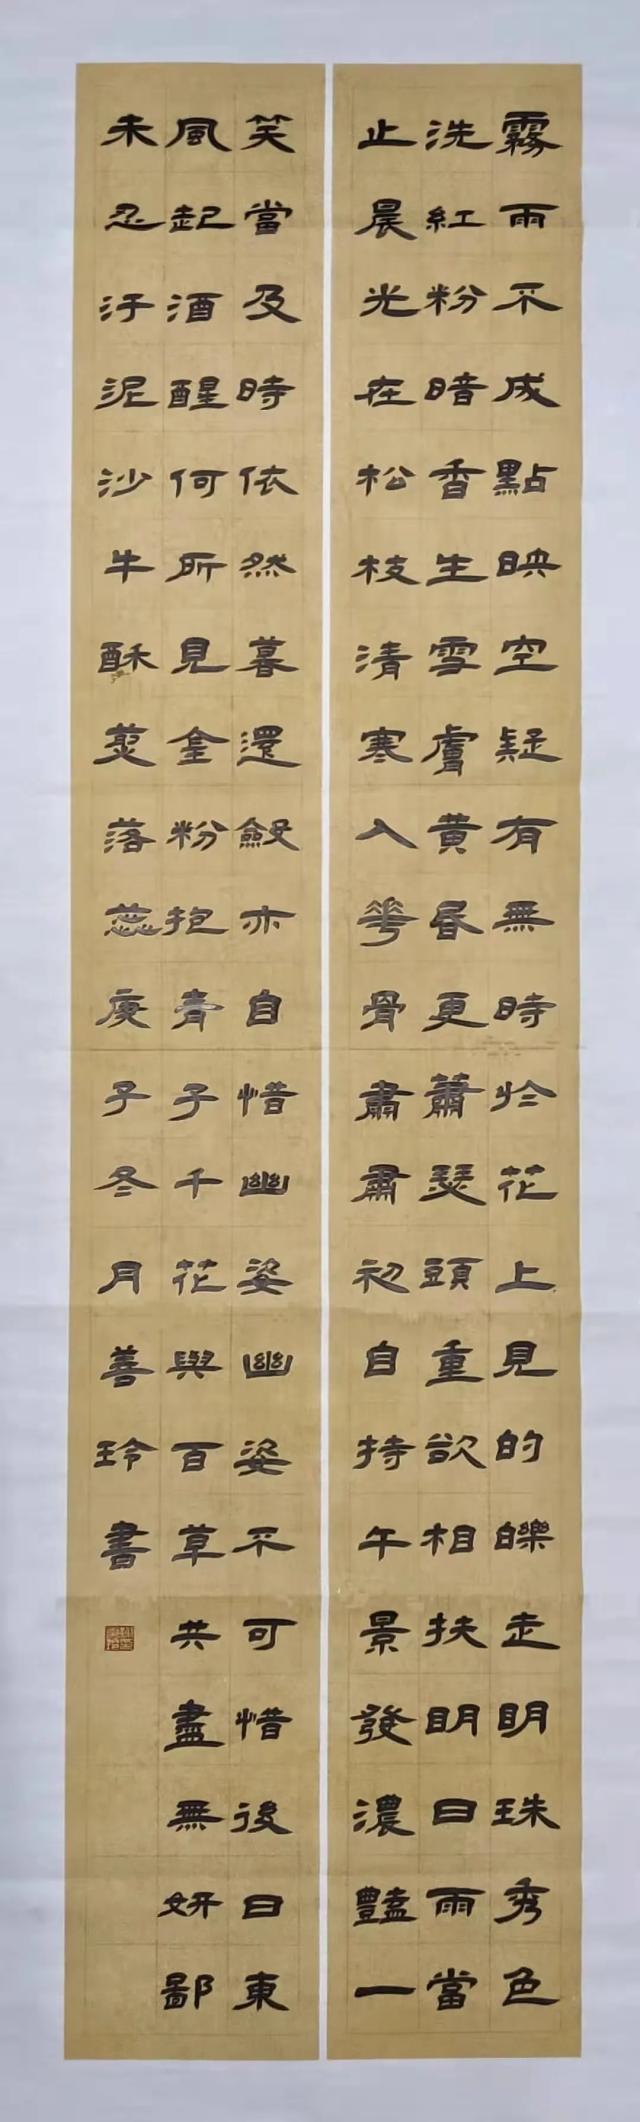 霧雨不成點映空疑有無時於花上見的皪走明珠秀色
洗紅粉暗香生雪膚黃昏更蕭瑟頭重欲相扶明日雨當
止晨光在松枝清寒入華骨肅肅初自持午景發濃豔一
笑當及時依然暮還斂亦自惜幽姿幽姿不可惜後日東
風起酒醒何所見金粉抱青子千花與百草共盡無妍鄙
未忍汙泥沙牛酥煎落蕊庚子冬月善玲書